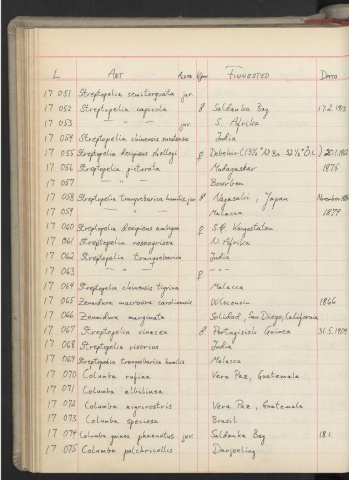 L ART Kjønn FINNESTED DATO
17 051 Streptopelia semitorquata juv.
17 052 Streptopelia capicola ♂ Saldanha Bay 17.2.1913
17 053 — " — juv. S. Afrika
17 054 Streptopelia chinensis India
17 055 Streptopelia decipiens shelleyi ♀ Debekur (13½° N.Br. 32½° Ö.L.)
17 056 Streptopelia picturata Madagaskar 1875
17 057 — " — Bourbon
17 058 Streptopelia tranquebarica humilis, juv. ♂ Nagasaki, Japan November
17 059 — " — Malacca 1879
17 060 Streptopelia decipiens ambigua ♀
17 061 Streptopelia roseogrisea N. Afrika
17 062 Streptopelia tranquebarica India
17 063 — " — ♀ — " —
17 064 Streptopelia chinensis tigrina Malacca
17 065 Zenaidura macroura carolinensis Wisconsin 1866
17 066 Zenaidura marginata Solidad, San Diego, California
17 067 Streptopelia vinacea ♂ Portugisisk Guinea 31.5.1909
17 068 Streptopelia risorius India
17 069 Streptopelia tranquebarica humilis Malacca
17 070 Columba rufina Vera Paz, Guatemala
17 071 Columba albilinea
17 072 Columba nigrirostris Vera Paz, Guatemala
17 073 Columba speciosa Brasil
17 074 Columba guinea phaeonotus juv. Saldanha Bay 18
17 075 Columba pulchricollis Darjeeling